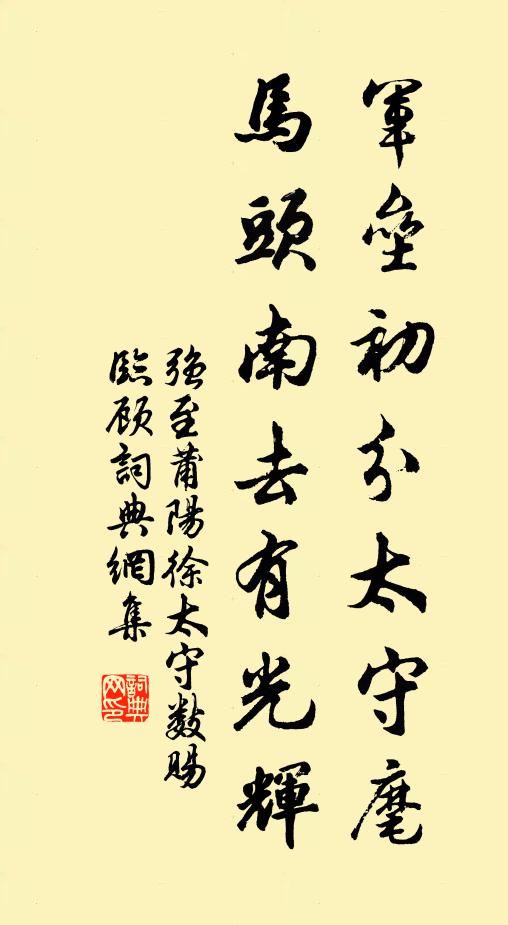 軍壘初分太守麾
馬頭南去有光輝
強至莆陽徐太守數賜
臨顾詞典網集
詞典
网印